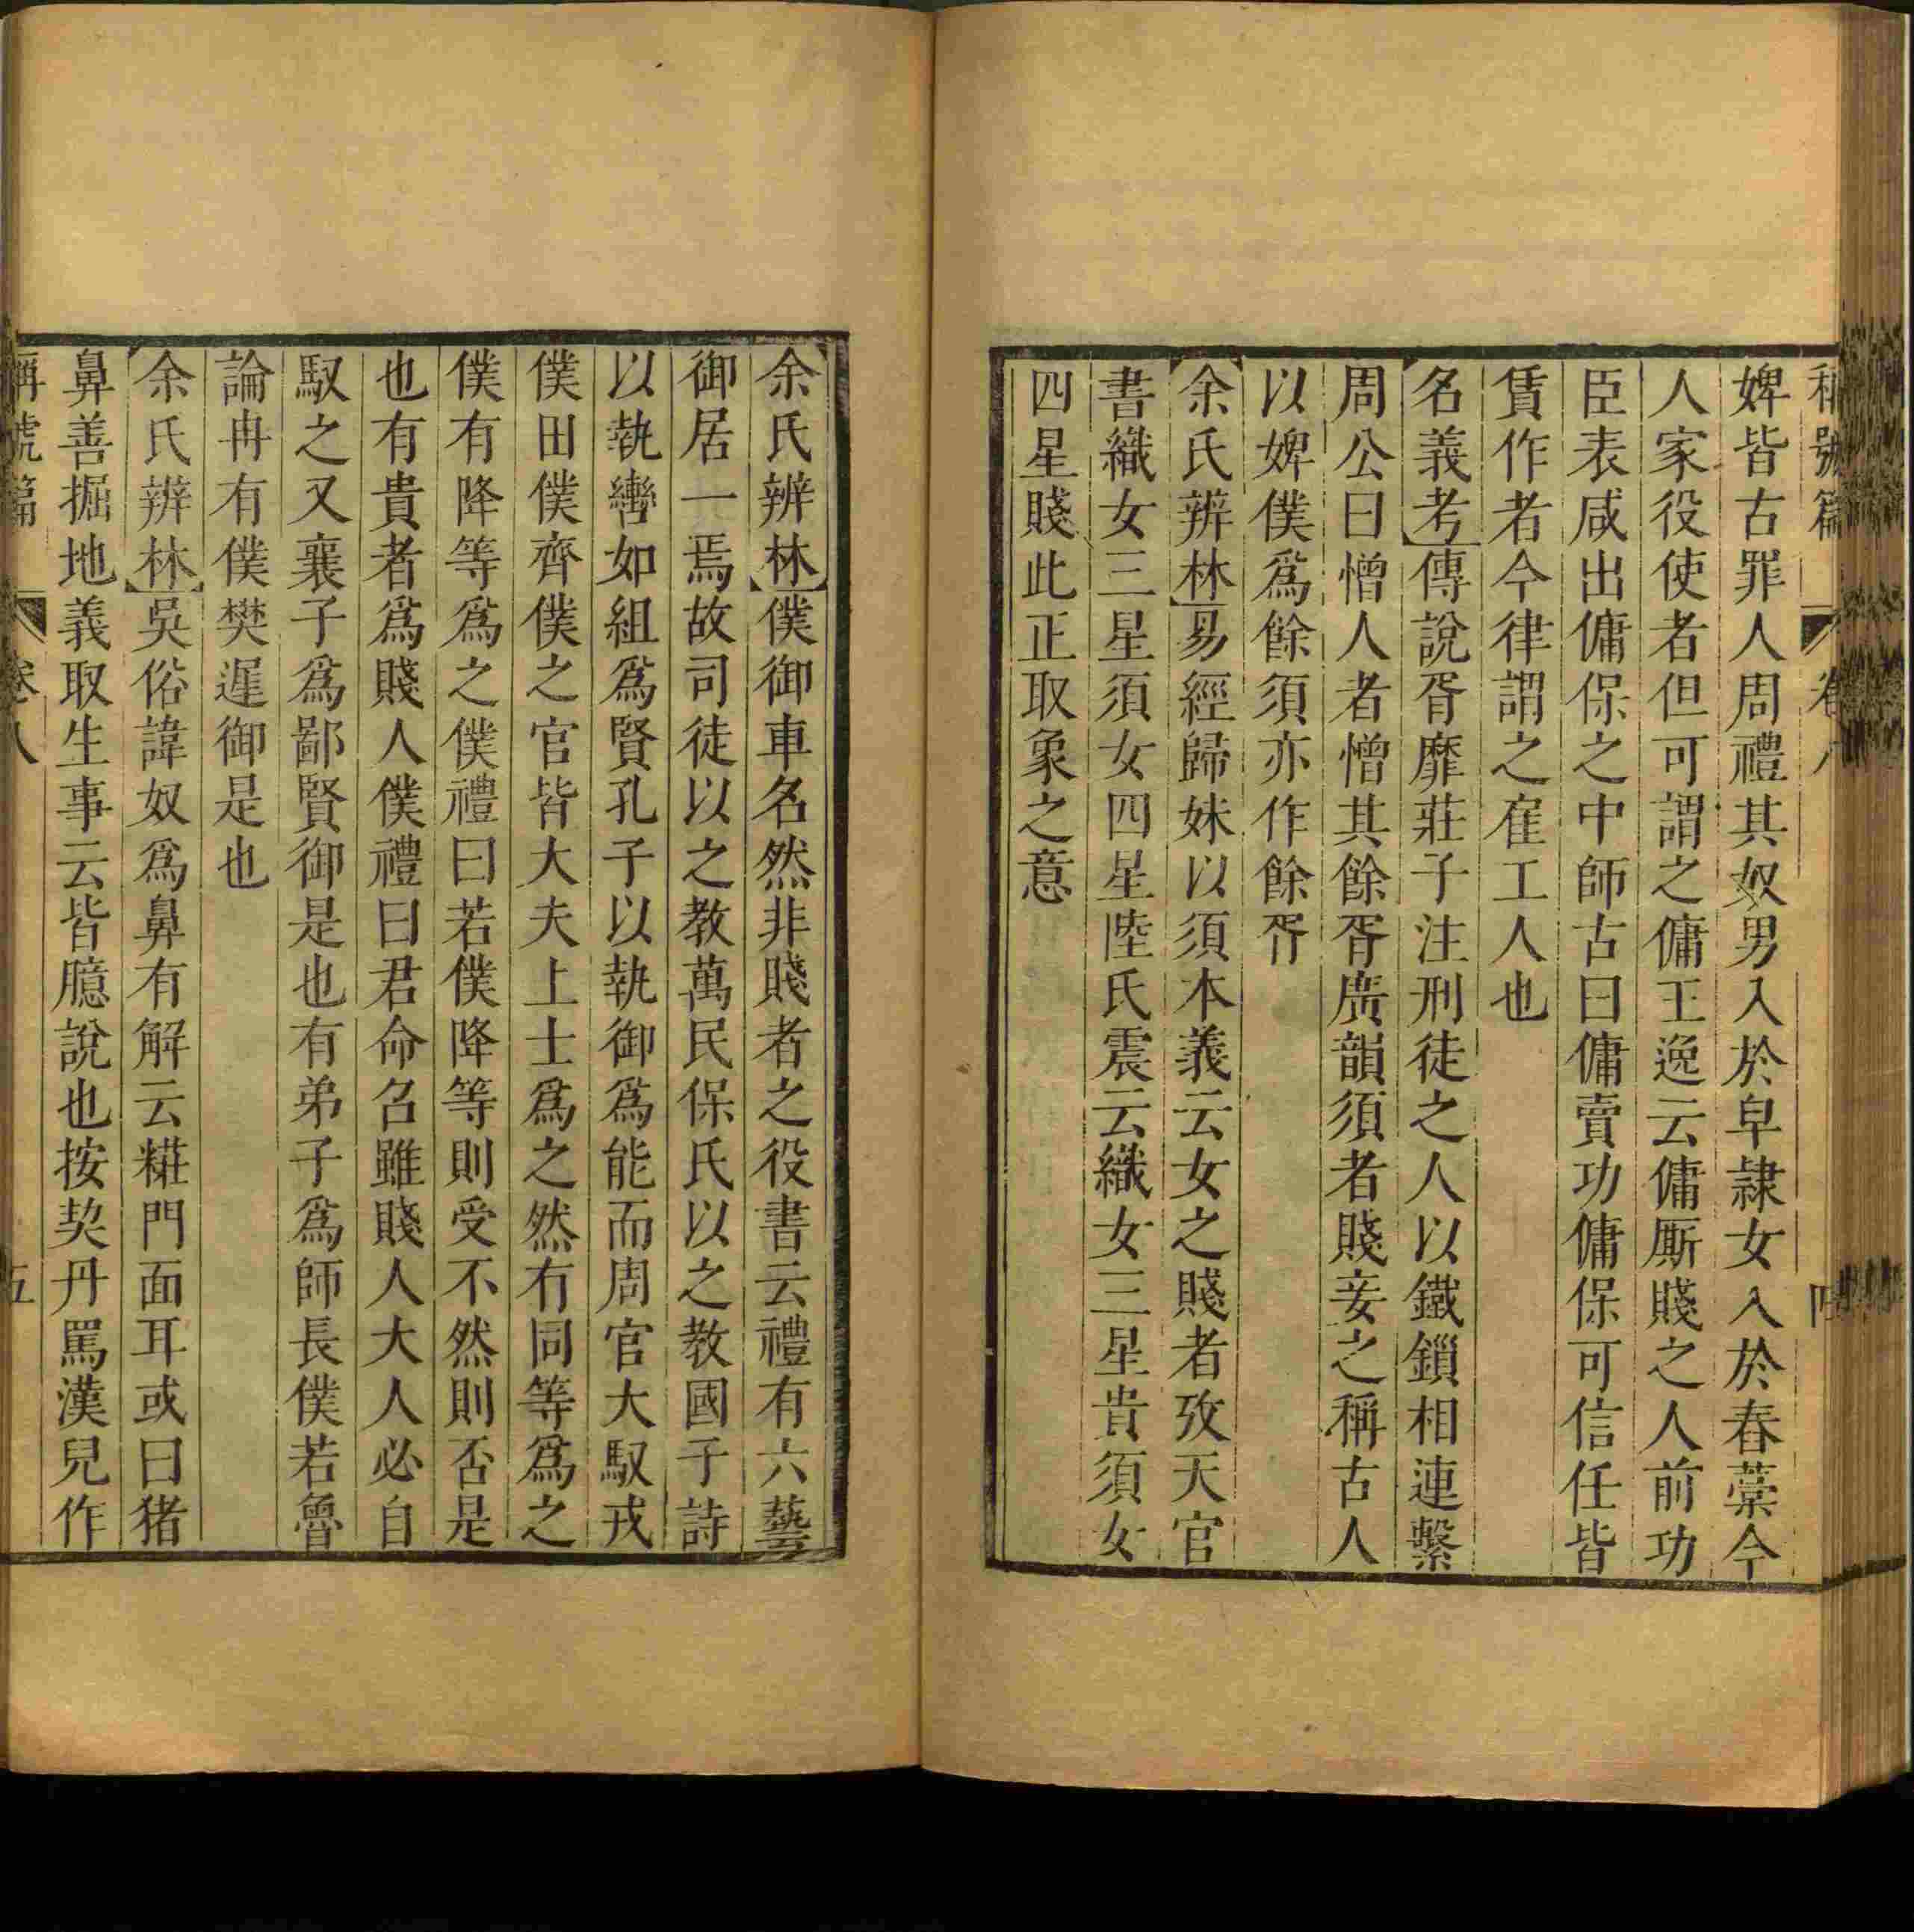 稱號篇 卷八 四
婢皆古罪人周禮其奴男入於皁隷女入於舂藁今
人家役使者但可謂之傭王逸云傭厮賤之人前功
臣表咸出傭保之中師古曰傭賣功傭保可信任皆
賃作者今律謂之雇工人也
名義考傳說胥靡莊子注刑徒之人以鐵鎖相連繫
周公曰憎人者憎其餘胥廣韻須者賤妾之稱古人
以婢僕爲餘須亦作餘胥
余氏辨林易經歸妹以須本義云女之賤者攷天官
書織女三星須女四星陸氏震云織女三星貴須女
四星賤此正取象之意
余氏辨林僕御車名然非賤者之役書云禮有六藝
御居一焉故司徒以之教萬民保氏以之教國子詩
以執轡如組爲賢孔子以執御爲能而周官大馭戎
僕田僕齊僕之官皆大夫上士爲之然有同等爲之
僕有降等爲之僕禮曰若僕降等則受不然則否是
也有貴者爲賤人僕禮曰君命召雖賤人大人必自
馭之又襄子爲鄙賢御是也有弟子爲師長僕若魯
論冉有僕樊遲御是也
余氏辨林吳俗諱奴爲鼻有解云糚門面耳或曰猪
鼻善掘地義取生事云皆臆說也按契丹罵漢兒作
稱號篇 卷八 五